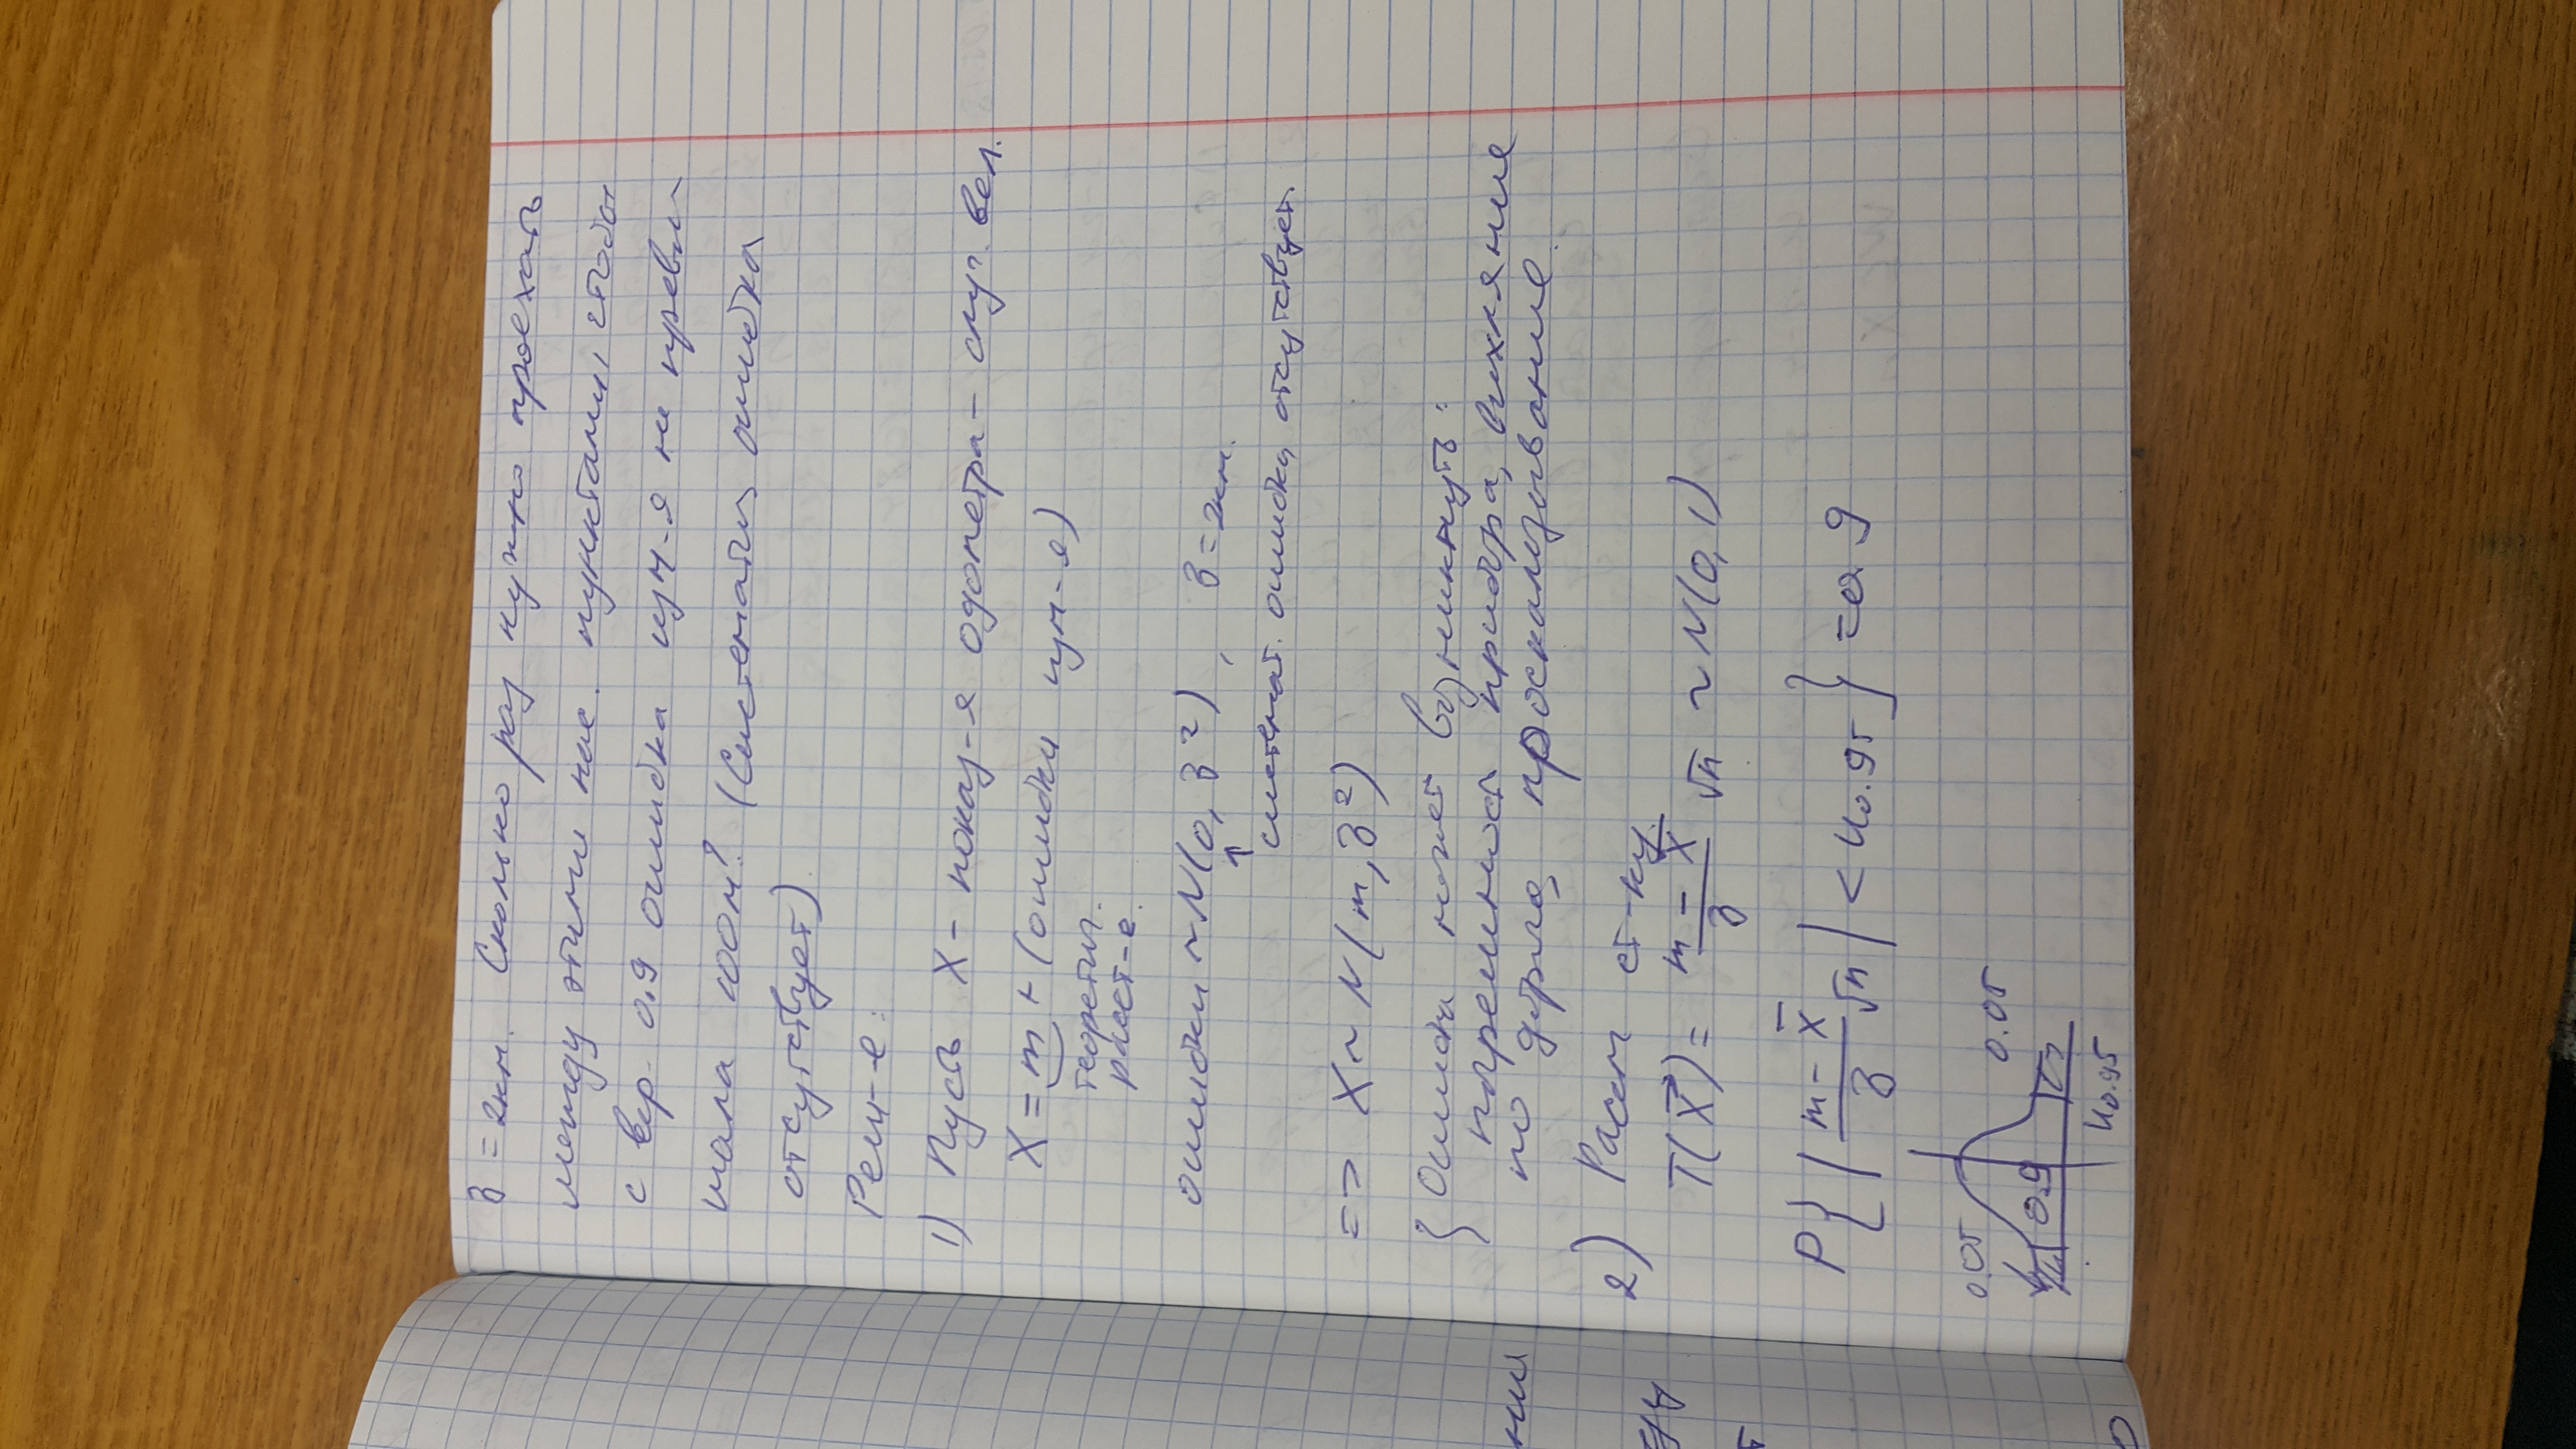 σ = 2км. Сколько раз нужно проехать
между этими нас. пунктами, чтобы
с вер. 0.9 ошибка изм-я не превы-
шала 100м? (Систематич ошибка
отсутствует).
Реш-е:
1) Пусть X – показ-я одометра – случ. вел.
X = m + (ошибки изм-я)
теоретич.
расст-е.
ошибки ~ N(0, σ²), σ = 2км.
↑
системат. ошибка отсутствует.
=> X ~ N(m, σ²)
{ Ошибка может возникнуть:
погрешность прибора, вихляние
по дороге, проскальзывание.
2) Рассм ст-ку.
T(X⃗) = (m – X̅)/σ √n ~ N(0, 1)
P{ | (m – X̅)/σ √n | < u0.95 } = 0.9
0.05
0.05
0.9
u0.95
нии
т